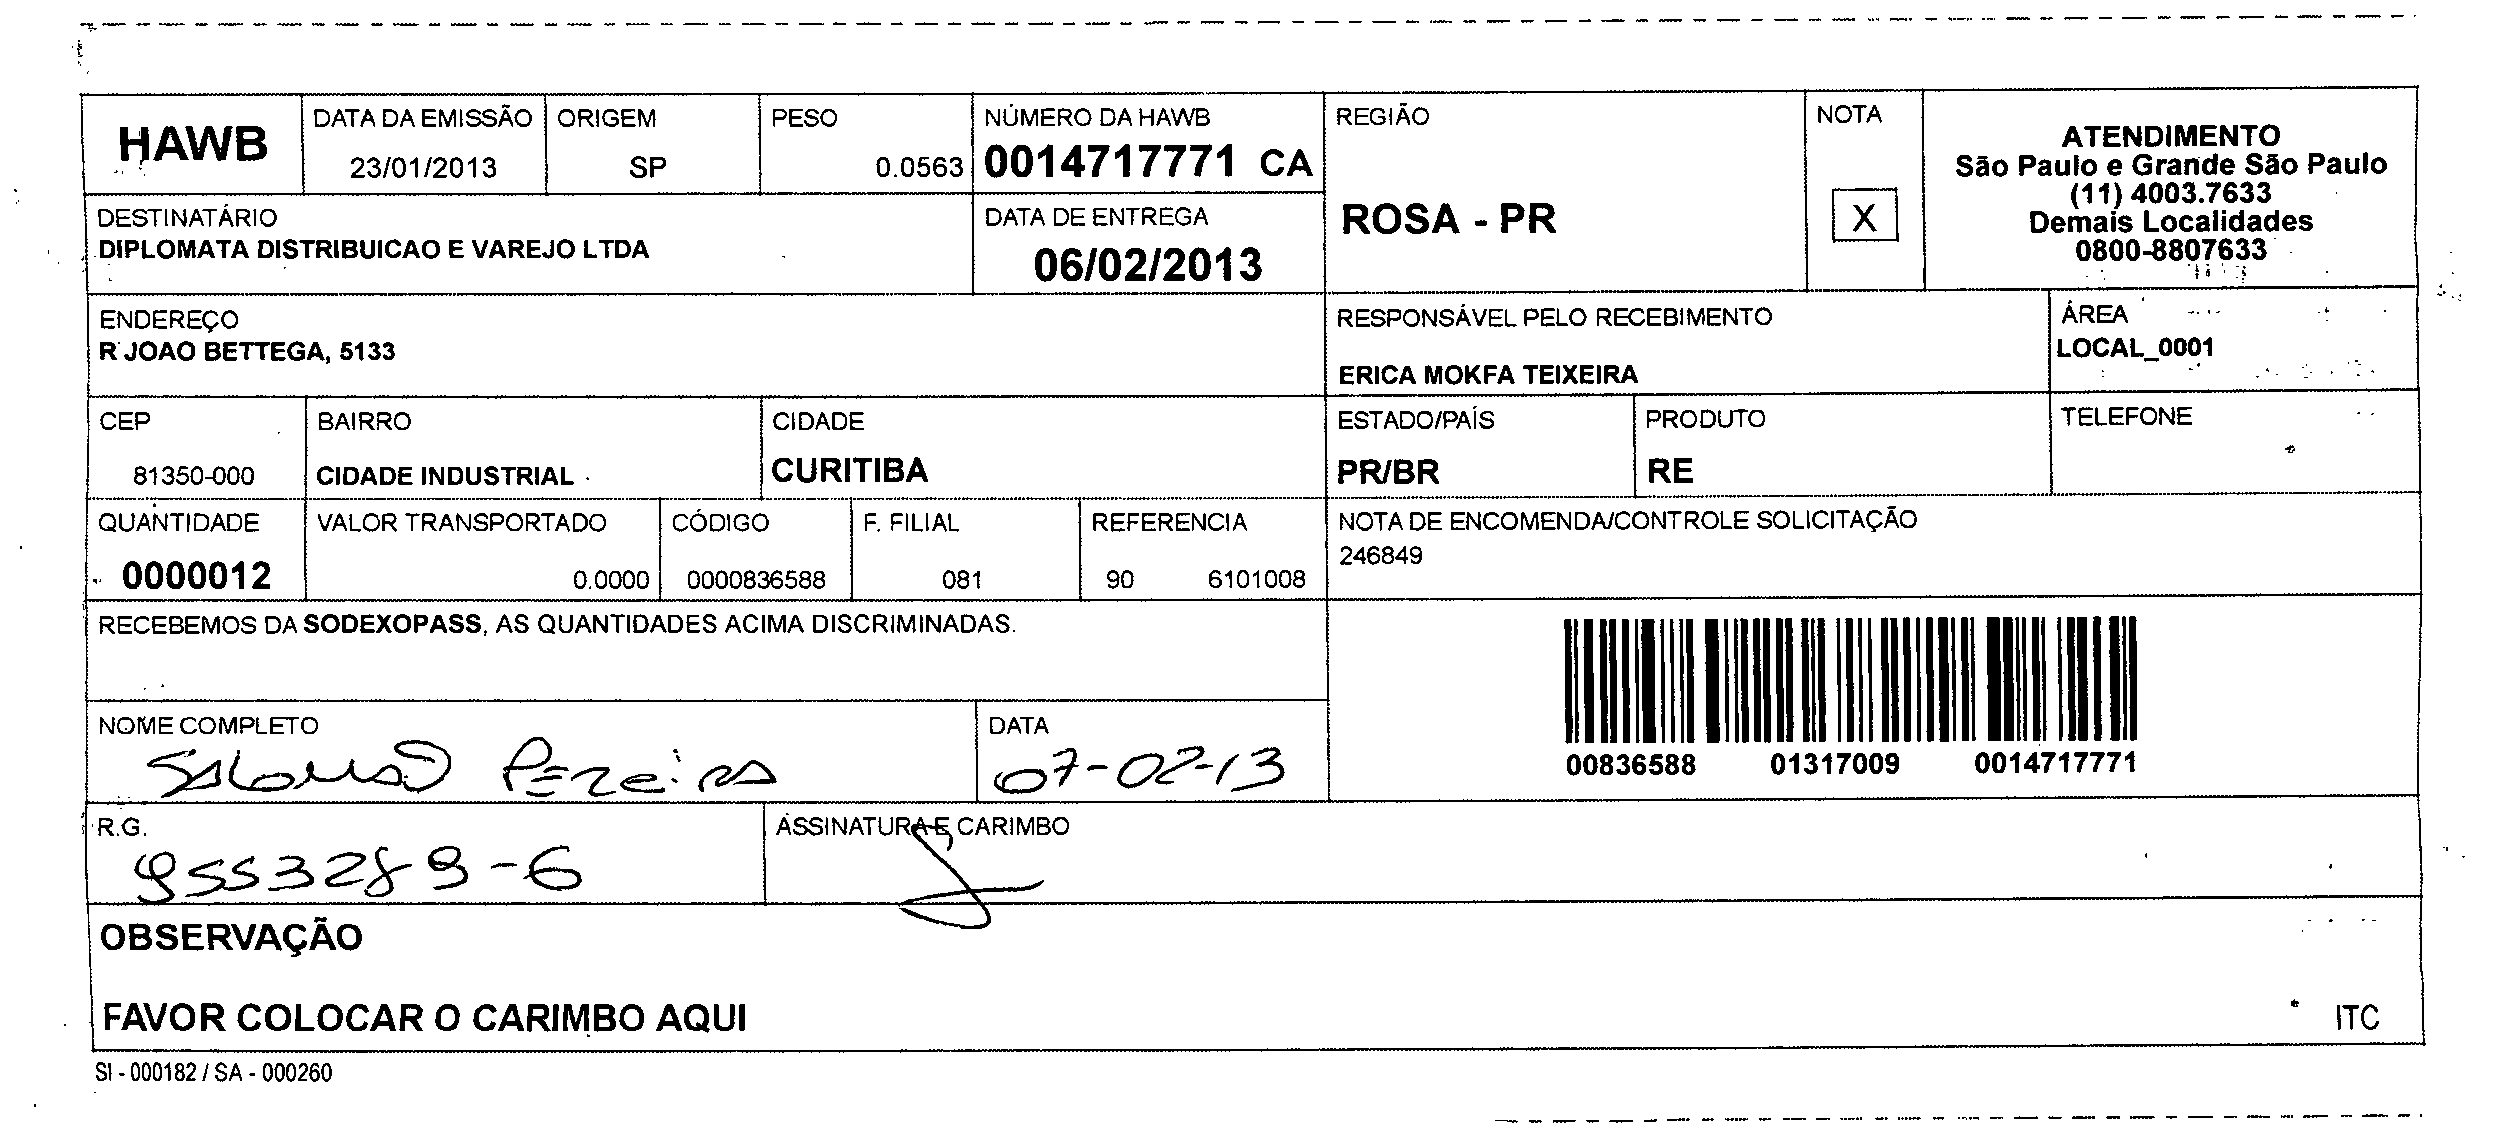 HAWB
DATA DA EMISSÃO
23/01/2013
ORIGEM
SP
PESO
0.0563
NÚMERO DA HAWB
0014717771 CA
REGIÃO
ROSA - PR
NOTA
X
ATENDIMENTO
São Paulo e Grande São Paulo
(11) 4003.7633
Demais Localidades
0800-8807633
DESTINATÁRIO
DIPLOMATA DISTRIBUICAO E VAREJO LTDA
DATA DE ENTREGA
06/02/2013
ENDEREÇO
R JOAO BETTEGA, 5133
RESPONSÁVEL PELO RECEBIMENTO
ERICA MOKFA TEIXEIRA
ÁREA
LOCAL_0001
CEP
81350-000
BAIRRO
CIDADE INDUSTRIAL
CIDADE
CURITIBA
ESTADO/PAÍS
PR/BR
PRODUTO
RE
TELEFONE
QUANTIDADE
0000012
VALOR TRANSPORTADO
0.0000
CÓDIGO
0000836588
F. FILIAL
081
REFERENCIA
90 6101008
NOTA DE ENCOMENDA/CONTROLE SOLICITAÇÃO
246849
RECEBEMOS DA SODEXOPASS, AS QUANTIDADES ACIMA DISCRIMINADAS.
00836588 01317009 0014717771
NOME COMPLETO
Salomão Pereira
DATA
07-02-13
R.G.
9553289-6
ASSINATURA E CARIMBO
OBSERVAÇÃO
FAVOR COLOCAR O CARIMBO AQUI
ITC
SI - 000182 / SA - 000260